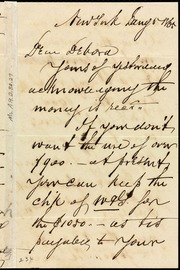 New York Jany 5 186
Dear Debora
Yours of yesterday
acknowledging the
money is recd.
If you don't
want the use of our
$900. — at present,
you can keep the
chk of WP&S for
the $1050. — as its
payable to your